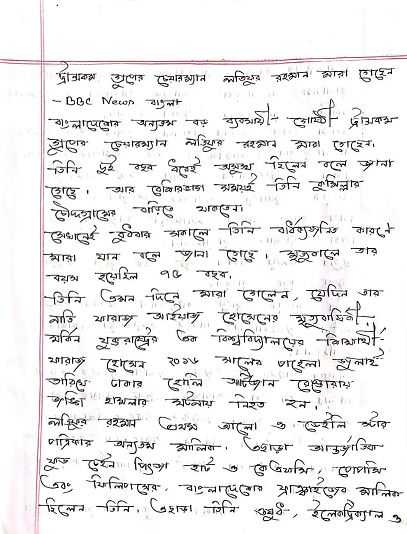 ট্রান্সকম গ্রুপের চেয়ারম্যান লতিফুর রহমান মারা গেছেন
- BBC News বাংলা
বাংলাদেশের অন্যতম বড় ব্যবসায়ী গোষ্ঠী ট্রান্সকম
গ্রুপের চেয়ারম্যান লতিফুর রহমান মারা গেছেন।
তিনি দুই বছর ধরেই অসুস্থ ছিলেন বলে জানা
গেছে। আর বেশিরভাগ সময়ই তিনি কুমিল্লার
চৌদ্দগ্রামের বাড়িতে থাকতেন।
সেখানেই বুধবার সকালে তিনি বার্ধক্যজনিত কারণে
মারা যান বলে জানা গেছে। মৃত্যুকালে তার
বয়স হয়েছিল ৭৫ বছর।
তিনি এমন দিনে মারা গেলেন, যেদিন তার
নাতি ফারাজ আইয়াজ হোসেনের মৃত্যুবার্ষিকী
মার্কিন যুক্তরাষ্ট্রের এক বিশ্ববিদ্যালয়ের শিক্ষার্থী
ফারাজ হোসেন ২০১৬ সালের পহেলা জুলাই
তারিখে ঢাকার হোলি আর্টিজান রেস্তোরায়
জঙ্গি হামলার ঘটনায় নিহত হন।
লতিফুর রহমান প্রথম আলো ও ডেইলি স্টার
পত্রিকার অন্যতম মালিক। এছাড়া আন্তর্জাতিক
ফুড চেইন পিৎজা হাট ও কেএফসি, পেপসি
এবং ফিলিপসের, বাংলাদেশের ফ্র্যাঞ্চাইজের মালিক
ছিলেন তিনি। এছাড়া তিনি ওষুধ, ইলেকট্রিক্যাল ও